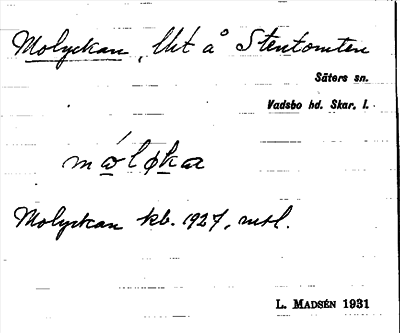 Molyckan, lht å Stentomten
Säters sn.
Vadsbo hd. Skar. l.
måløka
Molyckan kb. 1927, mtl.
L. MADSÉN 1931